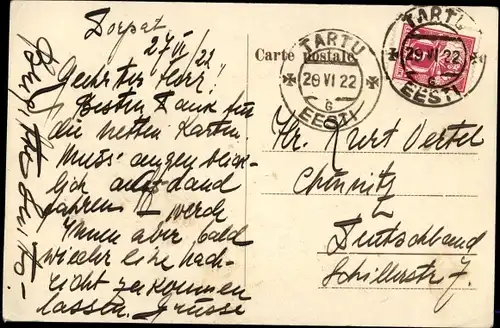 Dorpat
27 VI/22
Geehrter Herr!
Besten Dank für
die netten Karten.
Muss augenblick-
lich aufs Land
fahren – werde
Ihnen aber bald
wieder eine nach-
richt zukommen
lassen. Grüsse
Carte postale
TARTU
29 VI 22
6
EESTI
TARTU
29 VI 22
6
EESTI
Hr. Kurt Oertel
Chemnitz
Deutschland
Schillerstr 7.